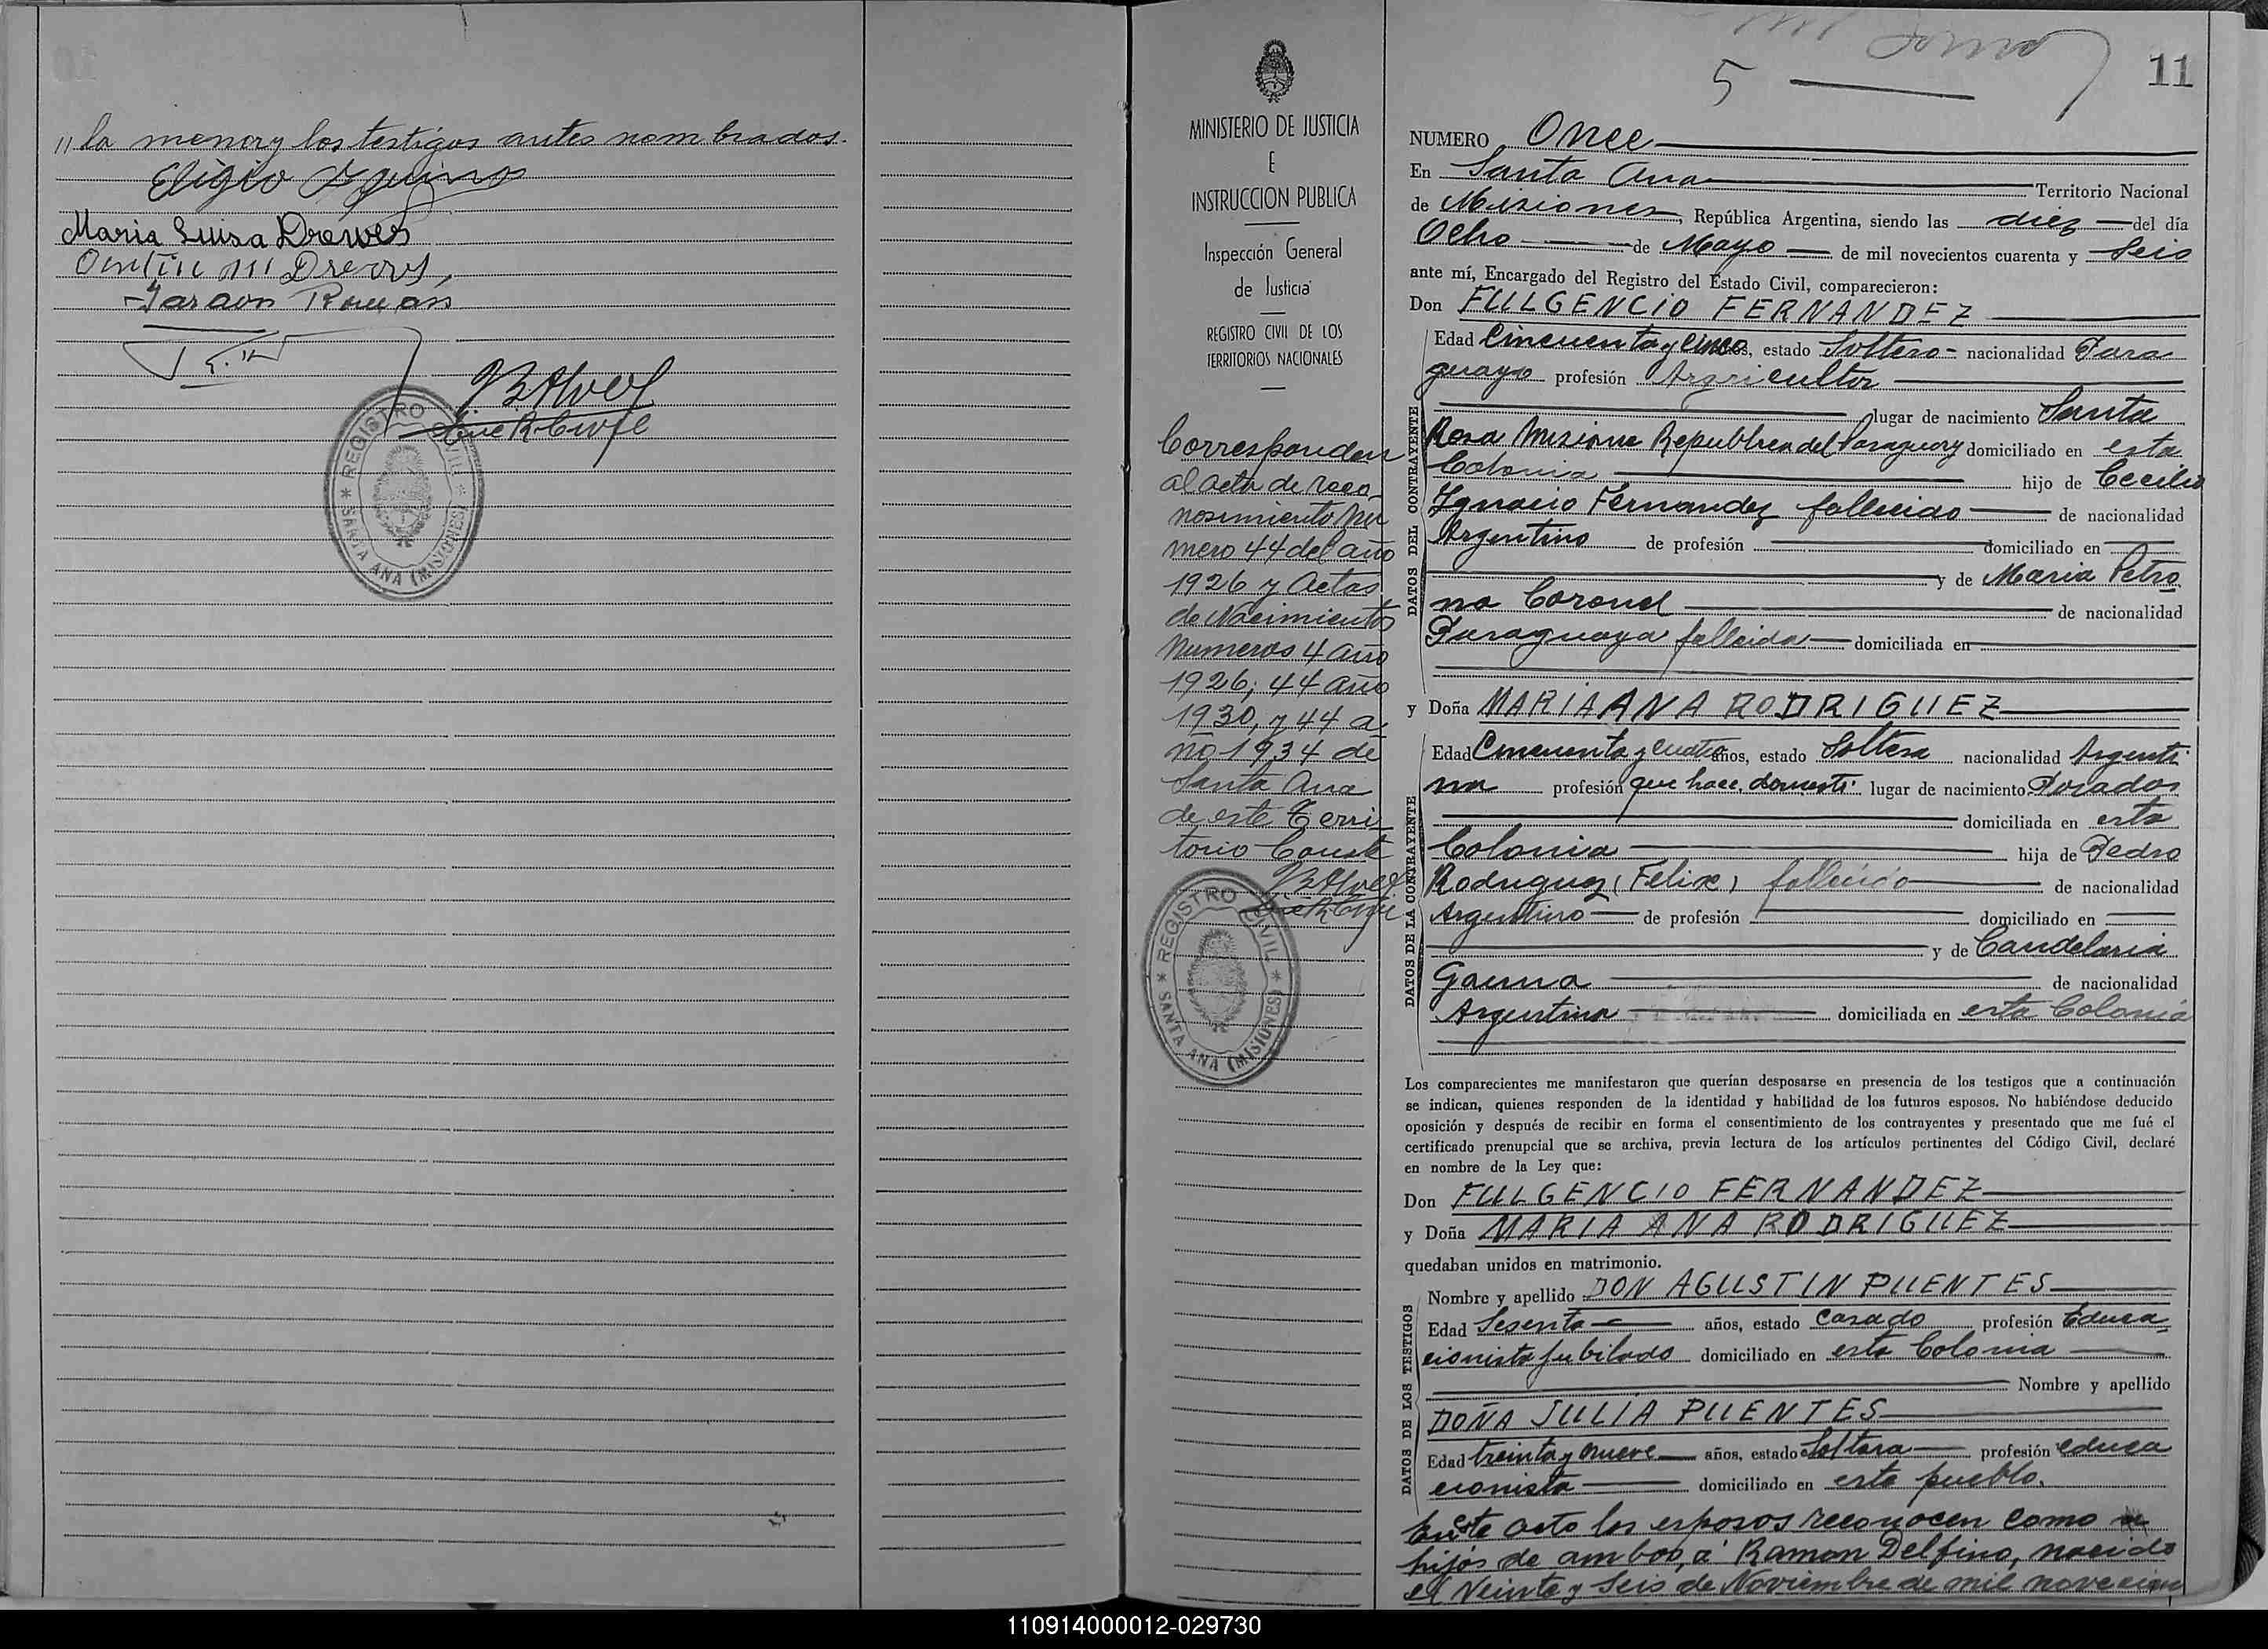 " la menor y los testigos antes nombrados.
Eligio Aquino
Maria Luisa Drewes
Drewes
Roman
BAlvez
REGISTRO CIVIL
* SANTA ANA (MISIONES) *
MINISTERIO DE JUSTICIA
E
INSTRUCCION PUBLICA
Inspección General
de Justicia
REGISTRO CIVIL DE LOS
TERRITORIOS NACIONALES
Corresponden
al acta de reco-
nosimiento nu
mero 44 del año
1926 y Actas
de Nacimientos
Numeros 4 año
1926; 44 año
1930, y 44 a
ño 1934 de
Santa Ana
de este Terri
torio Conste
BAlvez
REGISTRO CIVIL
* SANTA ANA (MISIONES) *
5
11
NUMERO Once
En Santa Ana Territorio Nacional
de Misiones, República Argentina, siendo las diez del día
Ocho de Mayo de mil novecientos cuarenta y Seis
ante mí, Encargado del Registro del Estado Civil, comparecieron:
Don FULGENCIO FERNANDEZ
DATOS DEL CONTRAYENTE
Edad Cincuenta y cinco, estado Soltero - nacionalidad Para
guayo profesión Agricultor
lugar de nacimiento Santa
Rosa Misione Republica del Paraguay domiciliado en esta
Colonia hijo de Cecilio
Ygnacio Fernandez fallecido de nacionalidad
Argentino de profesión domiciliado en
y de Maria Petro
na Coronel de nacionalidad
Paraguaya fallecida domiciliada en
y Doña MARIA ANA RODRIGUEZ
DATOS DE LA CONTRAYENTE
Edad Cincuenta y cuatro años, estado Soltera nacionalidad Argenti
na profesión que hace. domesti. lugar de nacimiento Posadas
domiciliada en esta
Colonia hija de Pedro
Rodriguez (Felix) fallecido de nacionalidad
Argentino de profesión domiciliado en
y de Candelaria
Gauna de nacionalidad
Argentina domiciliada en esta Colonia
Los comparecientes me manifestaron que querían desposarse en presencia de los testigos que a continuación
se indican, quienes responden de la identidad y habilidad de los futuros esposos. No habiéndose deducido
oposición y después de recibir en forma el consentimiento de los contrayentes y presentado que me fué el
certificado prenupcial que se archiva, previa lectura de los artículos pertinentes del Código Civil, declaré
en nombre de la Ley que:
Don FULGENCIO FERNANDEZ
y Doña MARIA ANA RODRIGUEZ
quedaban unidos en matrimonio.
DATOS DE LOS TESTIGOS
Nombre y apellido DON AGUSTIN PUENTES
Edad Sesenta años, estado casado profesión Educa
cionista jubilado domiciliado en esta Colonia
Nombre y apellido
DOÑA JULIA PUENTES
Edad treinta y nueve años, estado Soltera profesión educa
cionista domiciliado en este pueblo.
En este acto los esposos reconocen como
hijos de ambos, á Ramon Delfino, nacido
el Veinte y Seis de Noviembre de mil novecien
110914000012-029730